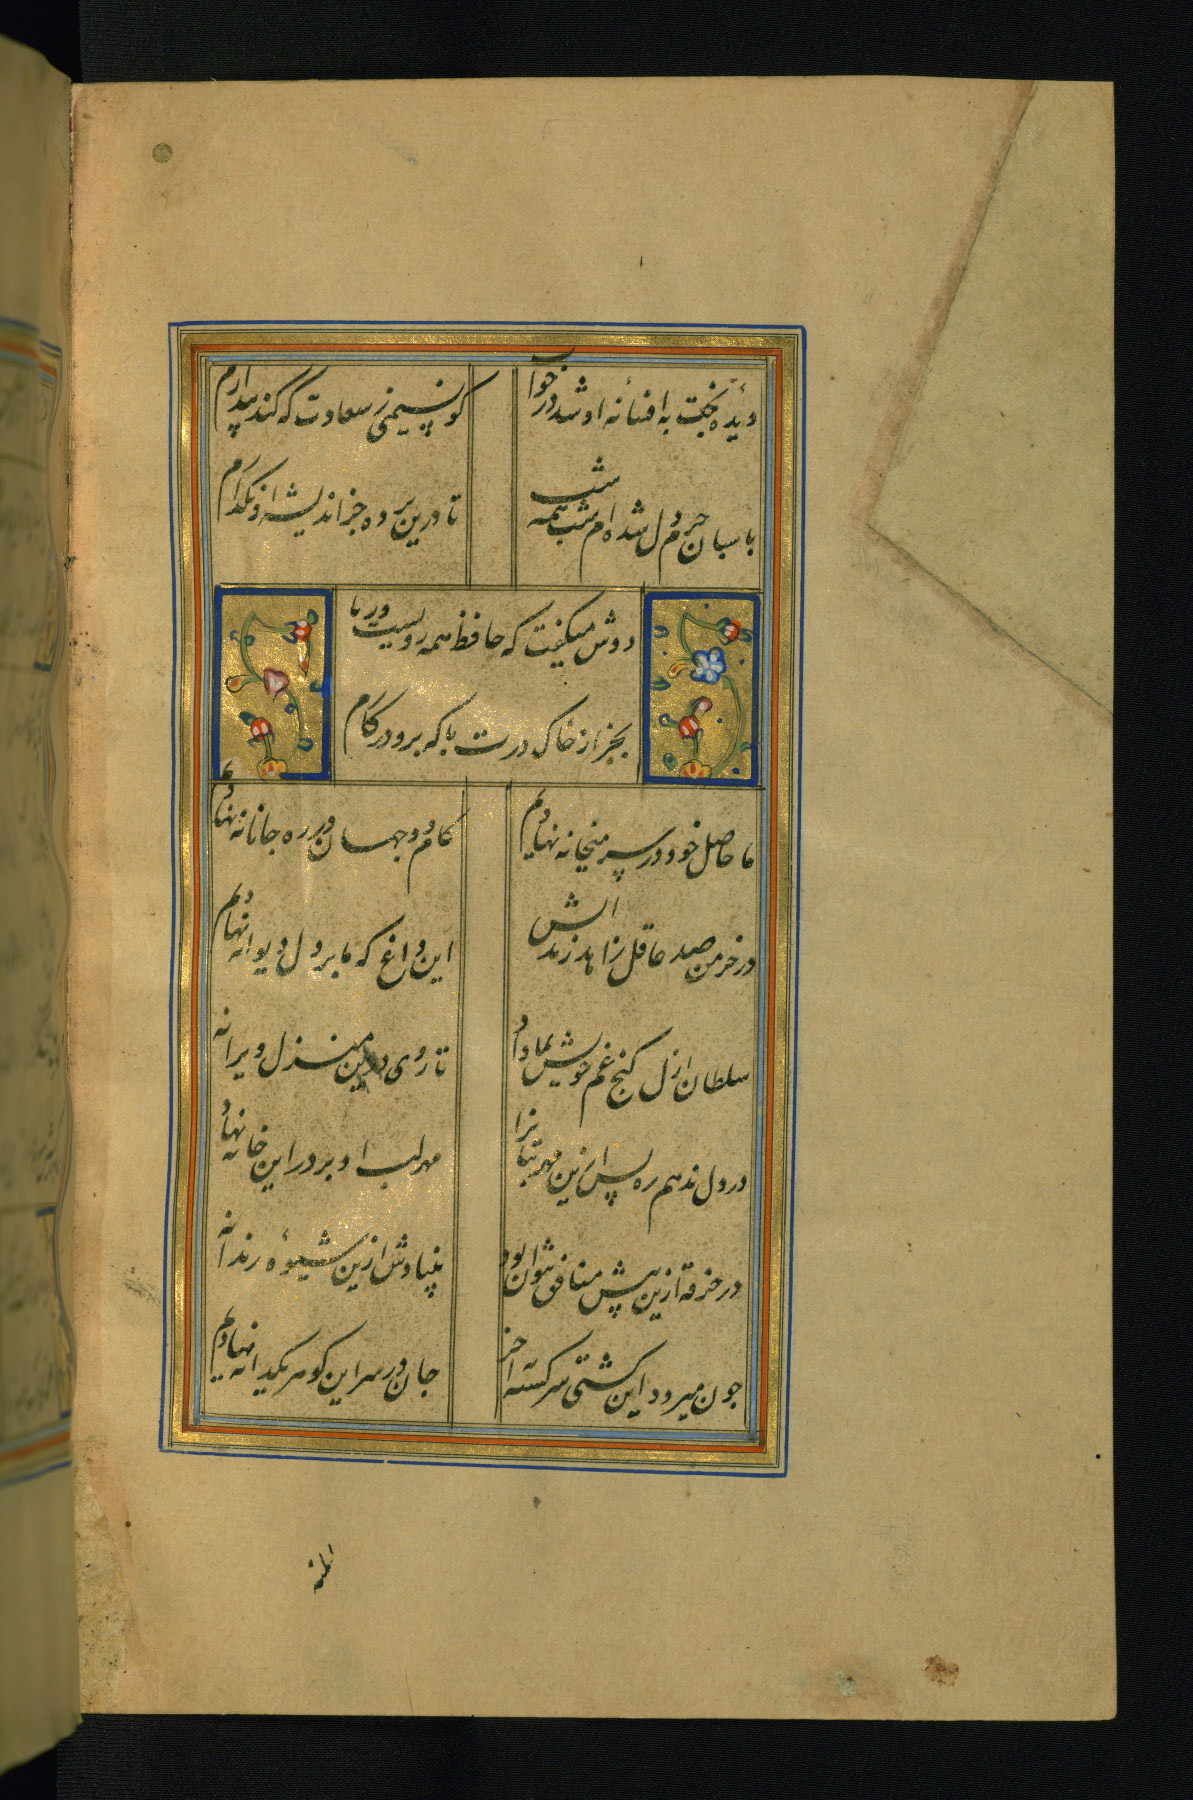 دیده بخت به افسانه او شد در خواب
کو نسیمی ز سعادت که کند بیدارم
پاسبان حرم دل شده ام شب همه شب
تا درین پرده جز اندیشه او نگذارم
دوش میگفت که حافظ همه رویست و ریا
بجز از خاک درت با که برو در کارم
ما حاصل خود در سر میخانه نهادیم
کام دو جهان در ره جانانه نهادیم
در خرمن صد عاقل زاهد زند آتش
این داغ که ما بر دل دیوانه نهادیم
سلطان ازل کنج غم خویش بما داد
تا روی درین منزل ویرانه
در دل ندهم ره پس ازین مهر بتان را
مهر لب او بر در این خانه نهاد
در خرقه ازین بیش منافق نتوان بود
بنیادش ازین شیوه رندانه
چون میرود این کشتی سرگشته آخر
جان در سر این گوهر یکدانه نهادیم
المنه